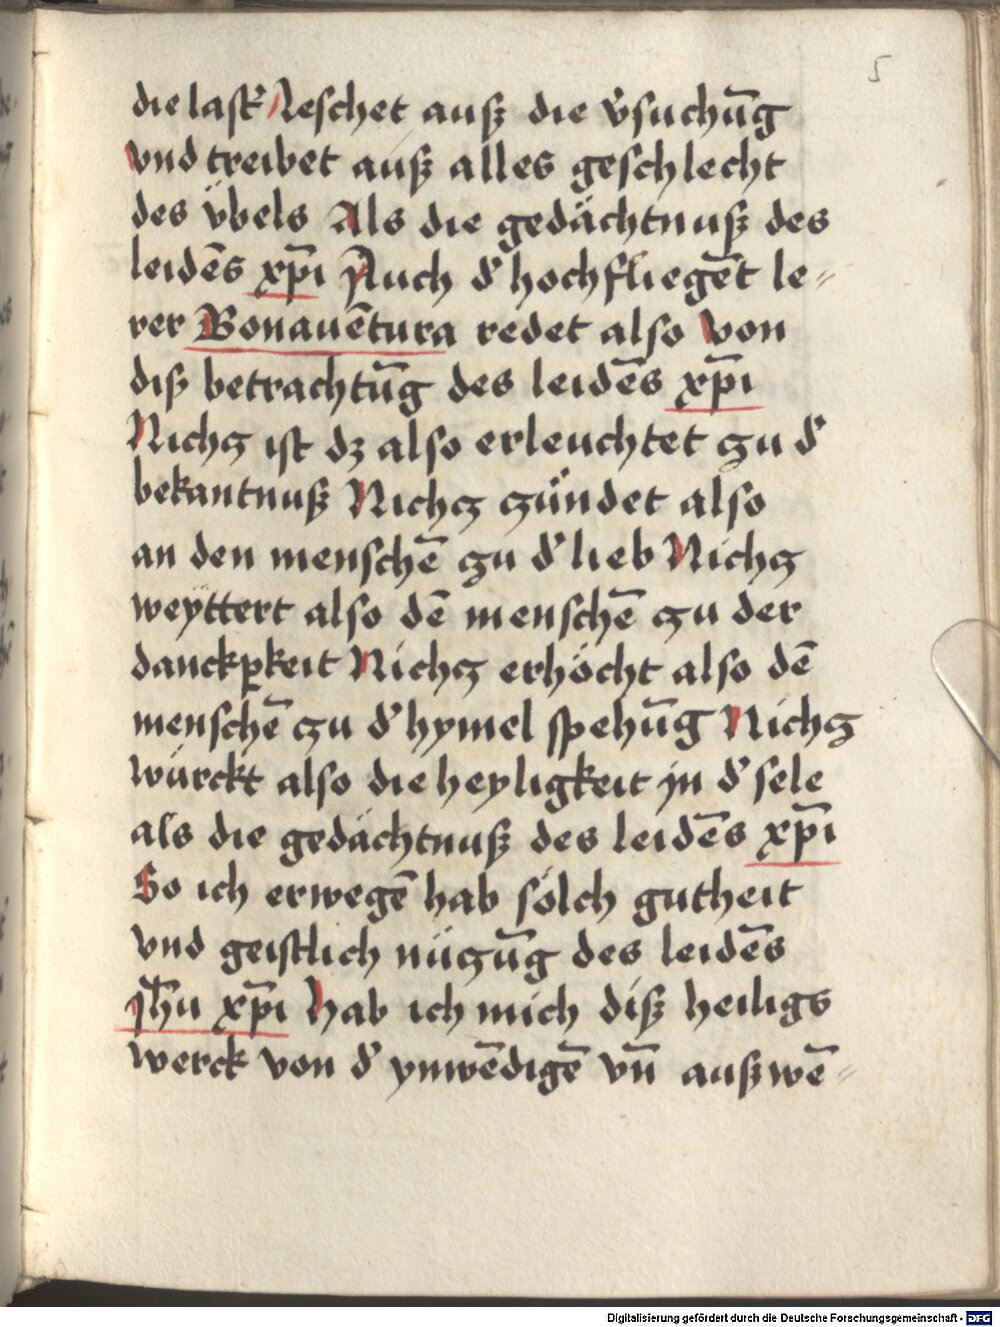 5
die last' Leschet auß die v̾suchūg
vnd treibet auß alles geschlecht
des übels Als die gedächtnuß des
leidēs xp̄i Auch d' hochfliegēt le=
rer Bonauētura redet also von
diß betrachtūg des leidēs xp̄i
Nichcz ist dz also erleuchtet czu d'
bekantnuß Nichcz czündet also
an den menschē czu d' lieb Nichcz
weyttert also dē menschē czu der
danckꝑkeit Nichcz erhöcht also dē
menschē czu d' hymel spehūg Nichcz
würckt also die heyligkeit jn d' sele
als die gedächtnuß des leidēs xp̄i
So ich erwegē hab sölch gutheit
vnd geistlich nüczūg des leidēs
jh̄u xp̄i hab ich mich diß heiligs
werck von d' ynwēdigē vn̄ außwē=
Digitalisierung gefördert durch die Deutsche Forschungsgemeinschaft - DFG